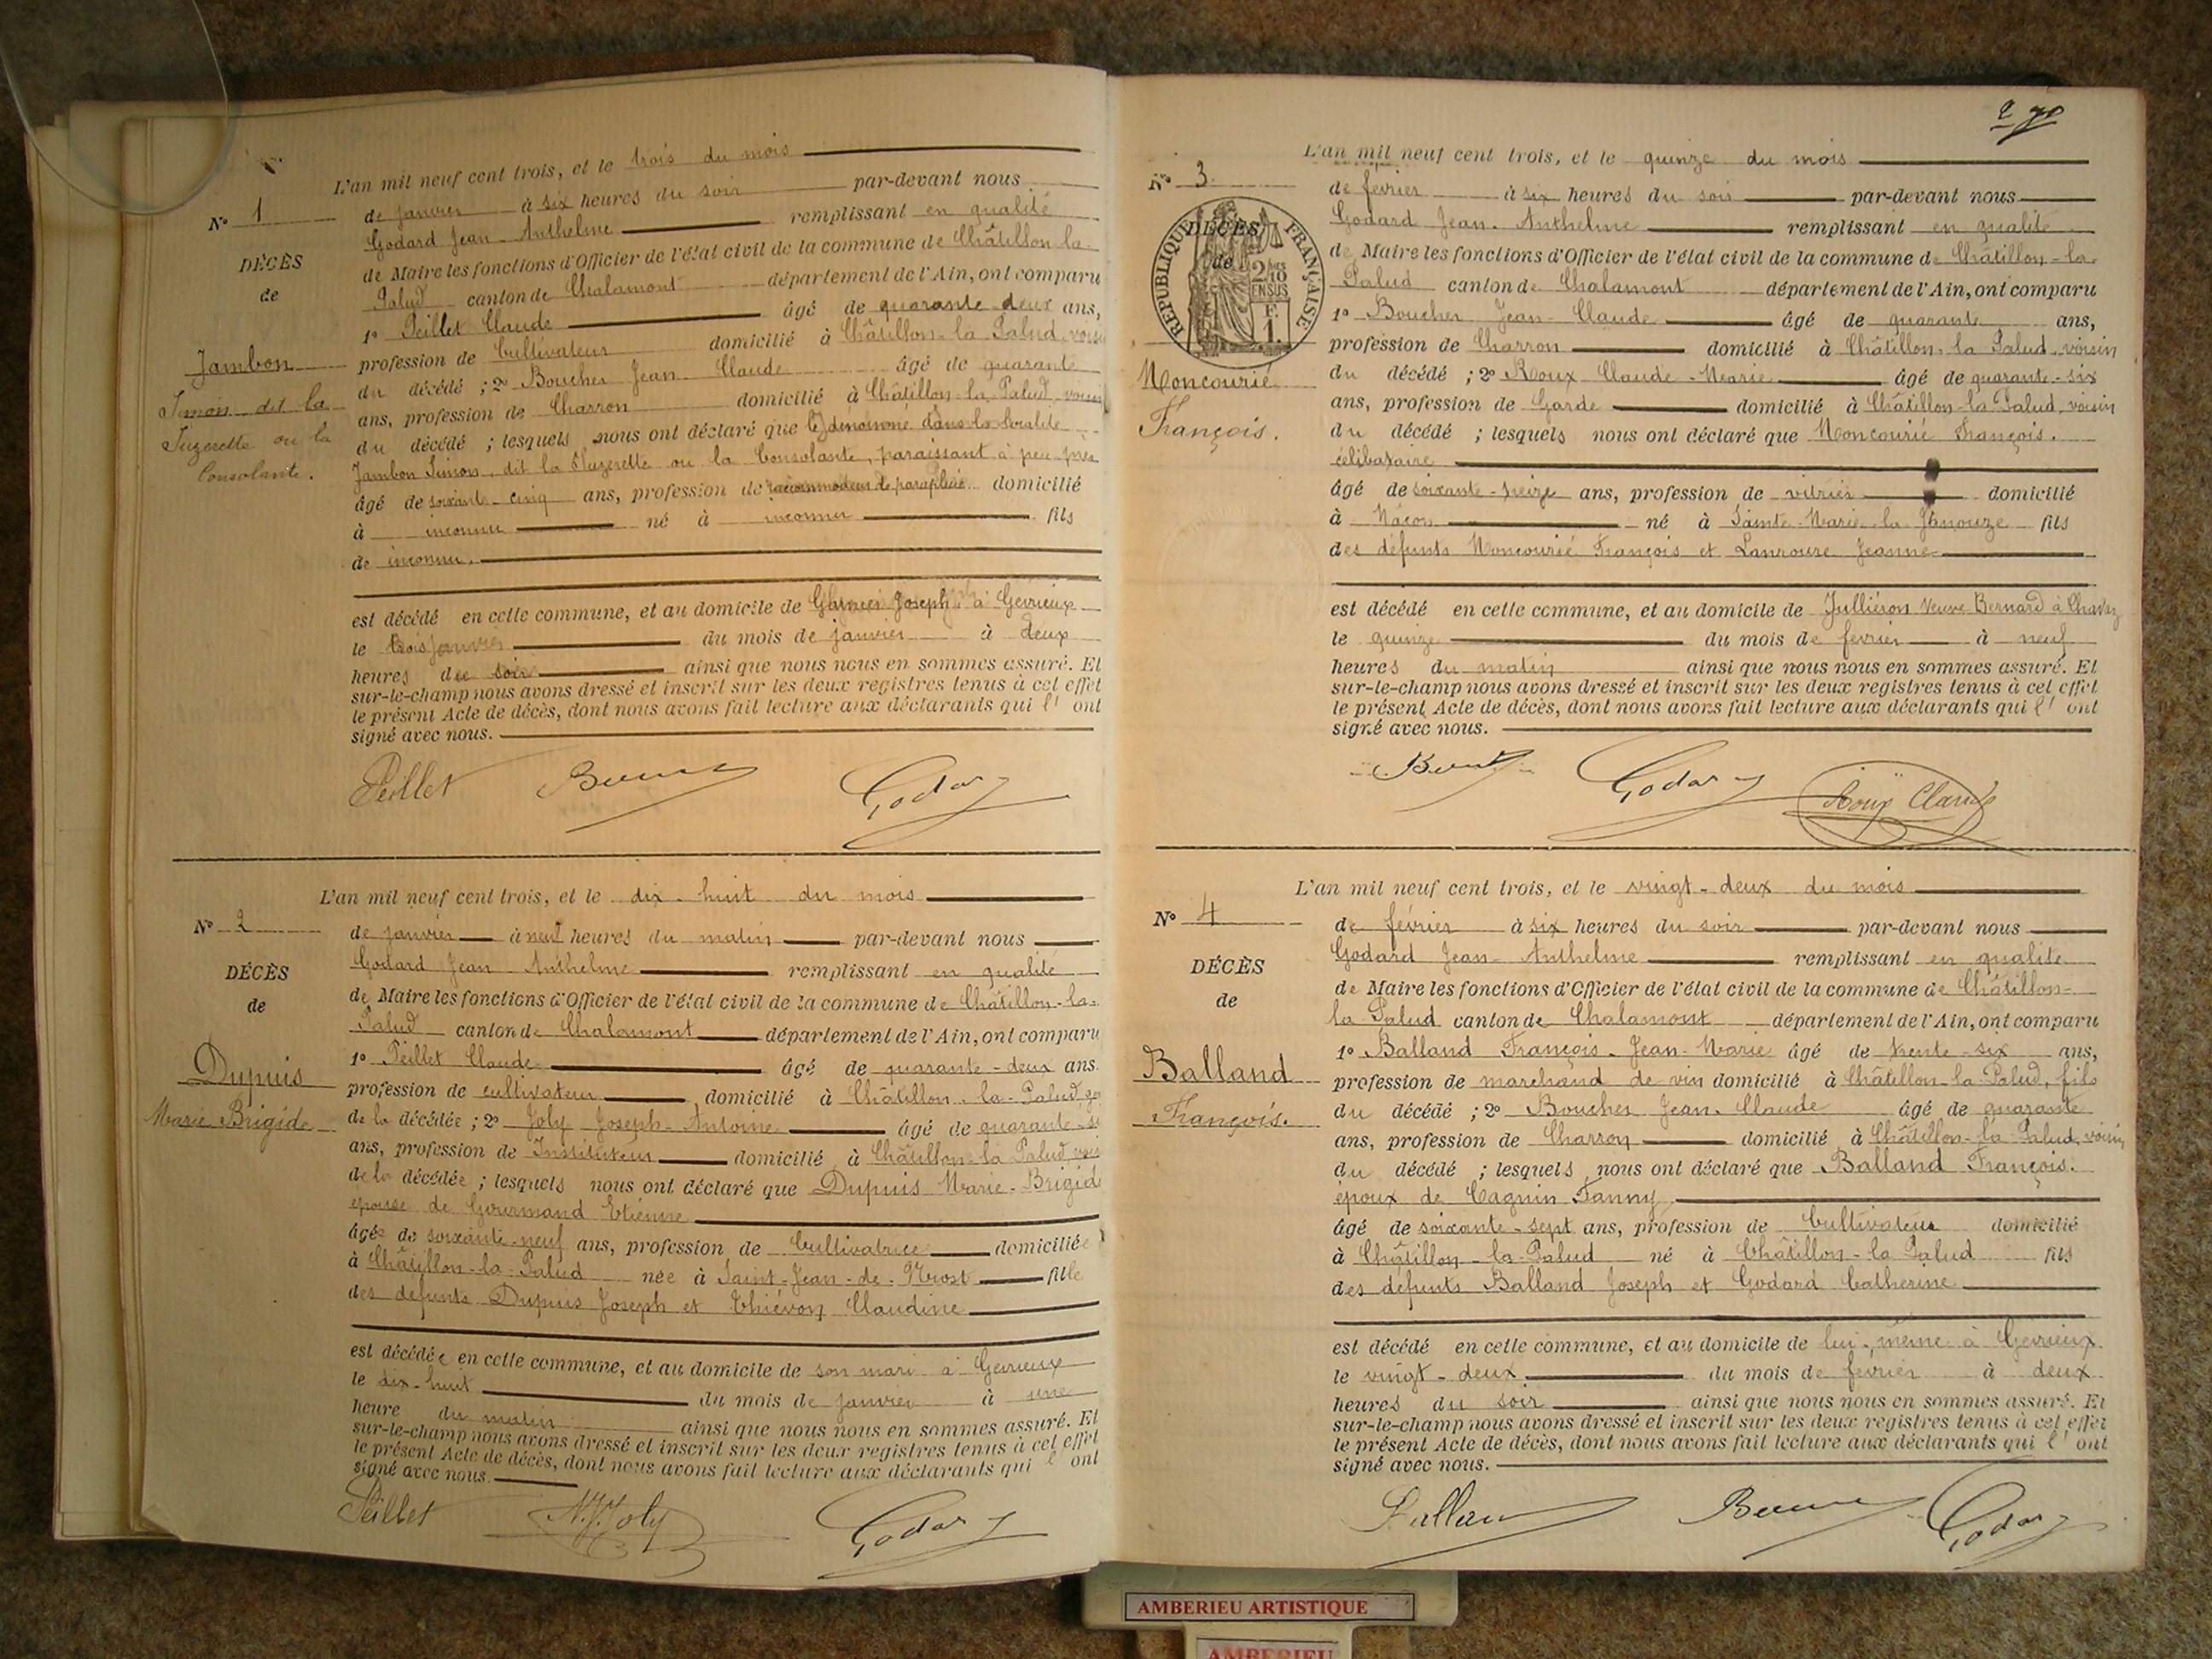 L'an mil neuf cent trois, et le trois du mois
N° 1
de janvier à six heures du soir par-devant nous
Godard Jean-Anthelme remplissant en qualité
DÉCÈS
de Maire les fonctions d'Officier de l'état civil de la commune de Châtillon-la-
de
Palud canton de Chalamont département de l'Ain, ont comparu
1° Peillet Claude âgé de quarante deux ans,
Jambon
profession de Cultivateur domicilié à Châtillon-la-Palud, voisin
du décédé ; 2° Boucher Jean Claude âgé de quarante
Simon dit la
ans, profession de Charron domicilié à Châtillon-la-Palud, voisin
Suzerette ou la
du décédé ; lesquels nous ont déclaré que le dénommé dans la localité
Consolante.
Jambon Simon, dit la Suzerette ou la Consolante, paraissant à peu près
âgé de soixante-cinq ans, profession de raccommodeur de parapluie domicilié
à inconnu né à inconnu fils
de inconnu.
est décédé en cette commune, et au domicile de Joseph à Gévrieux
le trois janvier du mois de janvier à deux
heures du soir ainsi que nous nous en sommes assuré. Et
sur-le-champ nous avons dressé et inscrit sur les deux registres tenus à cet effet
le présent Acte de décès, dont nous avons fait lecture aux déclarants qui l' ont
signé avec nous.
Peillet Godar
L'an mil neuf cent trois, et le dix-huit du mois
N° 2
de janvier à neuf heures du matin par-devant nous
Godard Jean Anthelme remplissant en qualité
DÉCÈS
de Maire les fonctions d'Officier de l'état civil de la commune de Châtillon-la-
de
Palud canton de Chalamont département de l'Ain, ont comparu
1° Peillet Claude âgé de quarante-deux ans
Dupuis
profession de cultivateur domicilié à Châtillon-la-Palud
Marie Brigide
de la décédée ; 2° Joly Joseph-Antoine âgé de quarante
ans, profession de Instituteur domicilié à Châtillon-la-Palud
de la décédée ; lesquels nous ont déclaré que Dupuis Marie-Brigide
épouse de Gourmand Etienne
âgée de soixante-neuf ans, profession de Cultivatrice domiciliée
à Châtillon-la-Palud née à Saint-Jean-de-Niost fille
des défunts Dupuis Joseph et Thiévon Claudine
est décédée en cette commune, et au domicile de son mari à Gévrieux
le dix-huit du mois de janvier à une
heure du matin ainsi que nous nous en sommes assuré. Et
sur-le-champ nous avons dressé et inscrit sur les deux registres tenus à cet effet
le présent Acte de décès, dont nous avons fait lecture aux déclarants qui l' ont
signé avec nous.
Peillet Joly Godar
L'an mil neuf cent trois, et le quinze du mois
N° 3
de février à six heures du soir par-devant nous
Godard Jean-Anthelme remplissant en qualité
DÉCÈS
de
RÉPUBLIQUE FRANÇAISE
de Maire les fonctions d'Officier de l'état civil de la commune de Châtillon-la-
Palud canton de Chalamont département de l'Ain, ont comparu
1° Boucher Jean-Claude âgé de quarante ans,
profession de Charron domicilié à Châtillon-la-Palud, voisin
Moncourié
du décédé ; 2° Roux Claude-Marie âgé de quarante-six
ans, profession de Garde domicilié à Châtillon-la-Palud, voisin
François.
du décédé ; lesquels nous ont déclaré que Moncourié François.
célibataire
âgé de soixante-seize ans, profession de vitrier domicilié
à Mâcon né à Sainte-Marie-la- fils
des défunts Moncourié François et Jeanne
est décédé en cette commune, et au domicile de Julliéron Veuve Bernard à
le quinze du mois de février à neuf
heures du matin ainsi que nous nous en sommes assuré. Et
sur-le-champ nous avons dressé et inscrit sur les deux registres tenus à cet effet
le présent Acte de décès, dont nous avons fait lecture aux déclarants qui l' ont
signé avec nous.
Godar Roux Claude
L'an mil neuf cent trois, et le vingt-deux du mois
N° 4
de février à six heures du soir par-devant nous
Godard Jean-Anthelme remplissant en qualité
DÉCÈS
de Maire les fonctions d'Officier de l'état civil de la commune de Châtillon-
de
la-Palud canton de Chalamont département de l'Ain, ont comparu
1° Balland François-Jean-Marie âgé de trente-six ans,
Balland
profession de marchand de vin domicilié à Châtillon-la-Palud, fils
François.
du décédé ; 2° Boucher Jean-Claude âgé de quarante
ans, profession de Charron domicilié à Châtillon-la-Palud, voisin
du décédé ; lesquels nous ont déclaré que Balland François.
époux de Cagnin Fanny
âgé de soixante-sept ans, profession de Cultivateur domicilié
à Châtillon-la-Palud né à Châtillon-la-Palud fils
des défunts Balland Joseph et Godard Catherine
est décédé en cette commune, et au domicile de lui-même à Gévrieux
le vingt-deux du mois de février à deux
heures du soir ainsi que nous nous en sommes assuré. Et
sur-le-champ nous avons dressé et inscrit sur les deux registres tenus à cet effet
le présent Acte de décès, dont nous avons fait lecture aux déclarants qui l' ont
signé avec nous.
Godar
AMBERIEU ARTISTIQUE
AMBERIEU